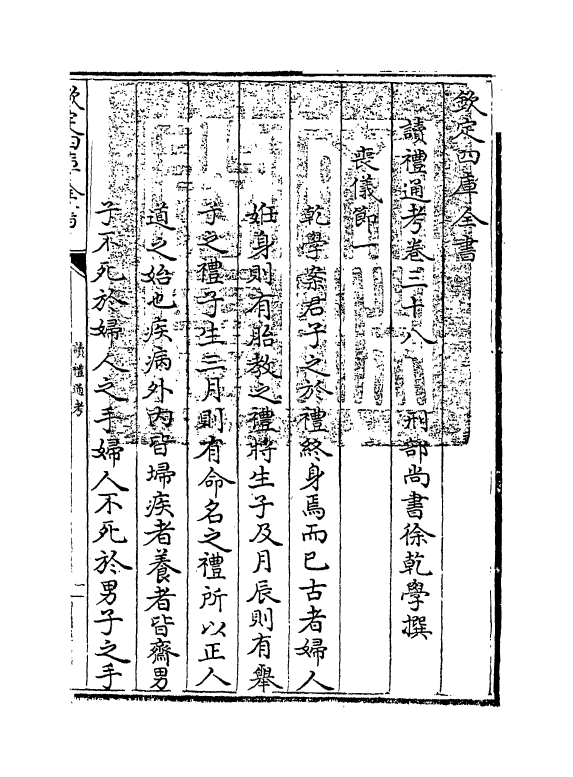 欽定四庫全書
讀禮通考卷三十八　刑部尚書徐乾學撰
喪儀節一
乾學案君子之於禮終身焉而已古者婦人
姙身則有胎教之禮將生子及月辰則有舉
子之禮子生三月則有命名之禮所以正人
道之始也疾病外内皆埽疾者養者皆齋男
子不死於婦人之手婦人不死於男子之手
欽定四庫全書
讀禮通考